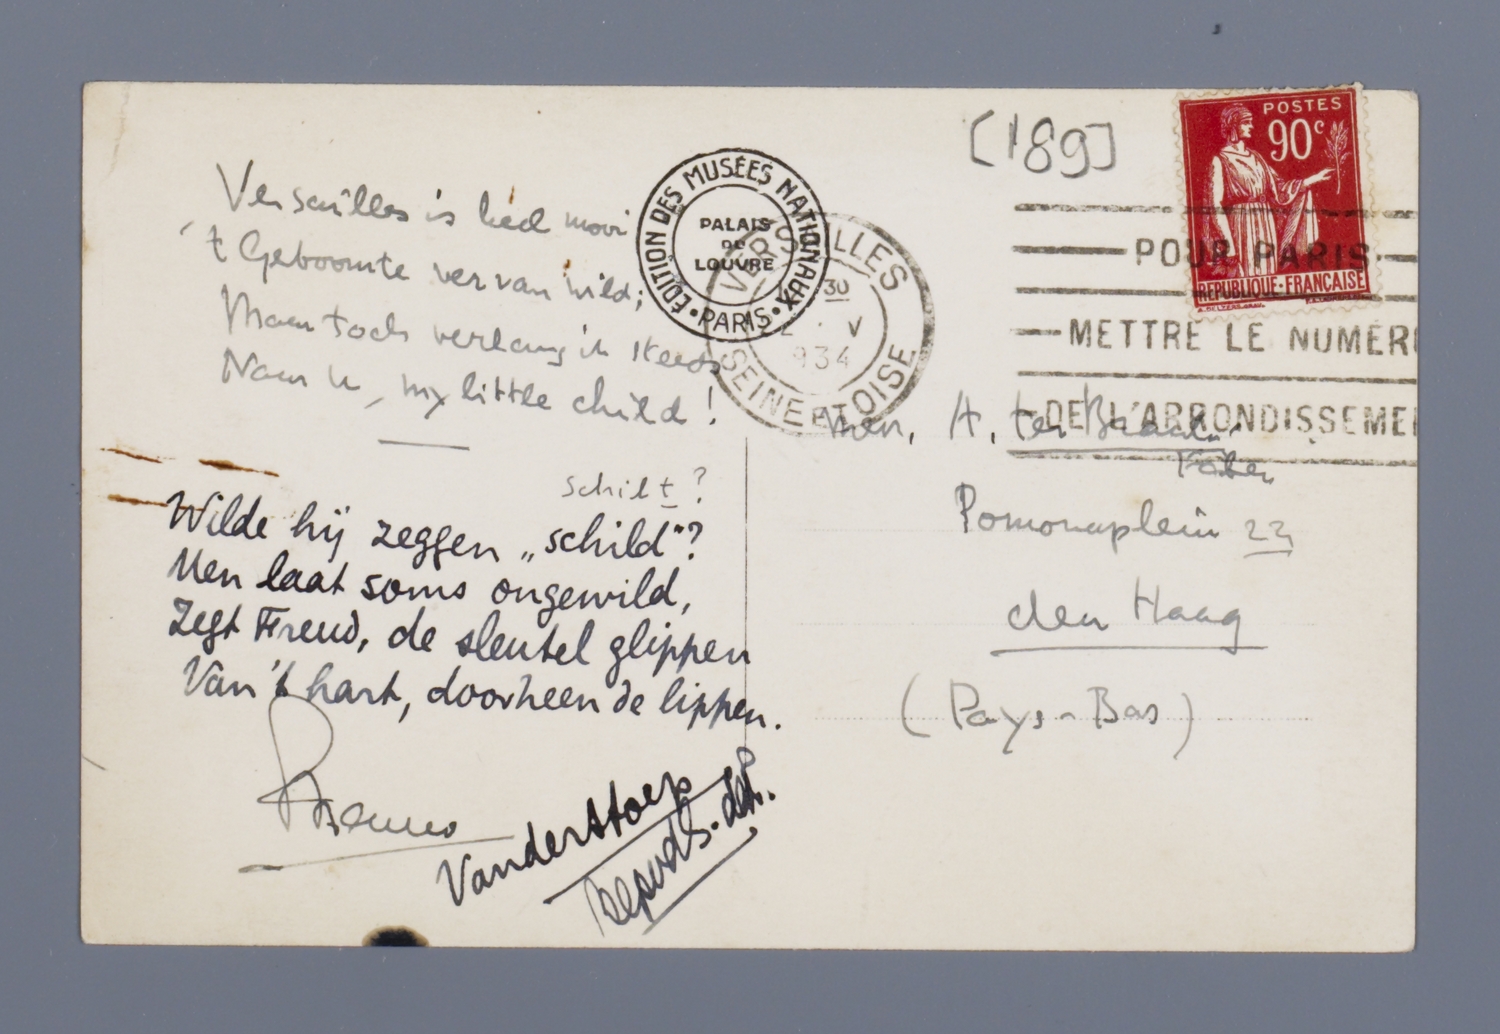 [189]
POSTES
90c
REPUBLIQUE·FRANÇAISE
EDITION DES MUSÉES NATIONAUX
·PARIS·
PALAIS
DU
LOUVRE
VERSAILLES
30
2 · V
934
SEINE ET OISE
POUR PARIS
METTRE LE NUMÉR
DE L'ARRONDISSEME
Versailles is heel mooi
't Geboomte ver van wild;
Maar toch verlang ik steeds
Naar u, my little child!
schilt?
Wilde hij zeggen „schild"?
Men laat soms ongewild,
Zegt Freud, de sleutel glippen
Van 't hart, doorheen de lippen.
Menno
Vanderstoep
A. ter Braak
Faber
Pomonaplein 22
den Haag
(Pays-Bas)